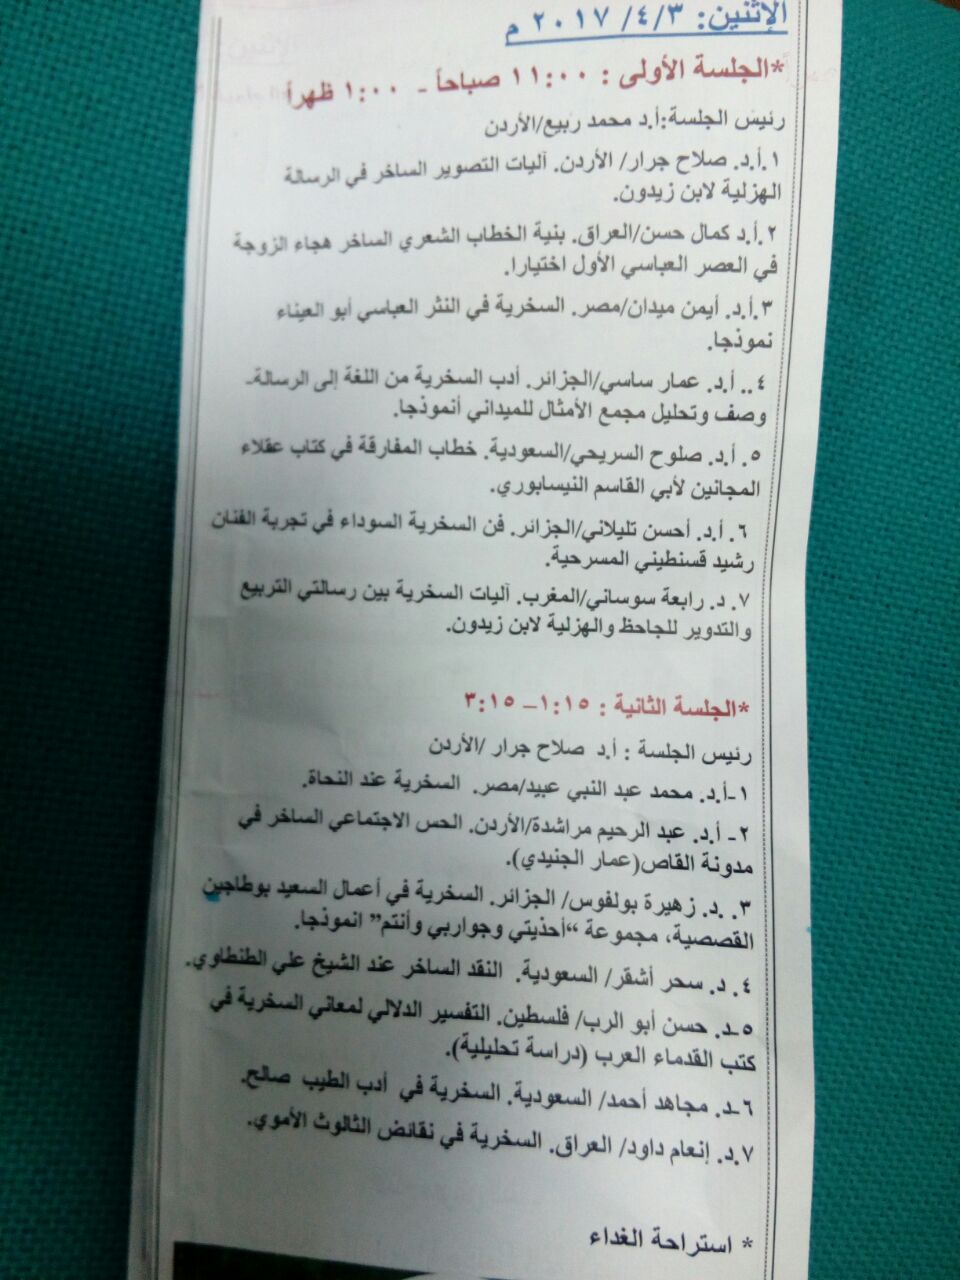 الإثنين: ٢٠١٧/٤/٣ م
*الجلسة الأولى : ١١:٠٠ صباحاً - ١:٠٠ ظهراً
رئيس الجلسة:أ.د محمد ربيع/الأردن
١.أ.د. صلاح جرار/ الأردن. آليات التصوير الساخر في الرسالة
الهزلية لابن زيدون.
٢.أ.د كمال حسن/العراق. بنية الخطاب الشعري الساخر هجاء الزوجة
في العصر العباسي الأول اختيارا.
٣.أ.د. أيمن ميدان/مصر. السخرية في النثر العباسي أبو العيناء
نموذجا.
٤.. أ.د. عمار ساسي/الجزائر. أدب السخرية من اللغة إلى الرسالة-
وصف وتحليل مجمع الأمثال للميداني أنموذجا.
٥. أ.د. صلوح السريحي/السعودية. خطاب المفارقة في كتاب عقلاء
المجانين لأبي القاسم النيسابوري.
٦. أ.د. أحسن تليلاني/الجزائر. فن السخرية السوداء في تجربة الفنان
رشيد قسنطيني المسرحية.
٧. د. رابعة سوساني/المغرب. آليات السخرية بين رسالتي التربيع
والتدوير للجاحظ والهزلية لابن زيدون.
*الجلسة الثانية : ١:١٥- ٣:١٥
رئيس الجلسة : أ.د صلاح جرار /الأردن
١-أ.د. محمد عبد النبي عبيد/مصر. السخرية عند النحاة.
٢- أ.د. عبد الرحيم مراشدة/الأردن. الحس الاجتماعي الساخر في
مدونة القاص(عمار الجنيدي).
٣. .د. زهيرة بولفوس/ الجزائر. السخرية في أعمال السعيد بوطاجين
القصصية، مجموعة “أحذيتي وجواربي وأنتم” انموذجا.
٤. د. سحر أشقر/ السعودية. النقد الساخر عند الشيخ علي الطنطاوي.
٥-د. حسن أبو الرب/ فلسطين. التفسير الدلالي لمعاني السخرية في
كتب القدماء العرب (دراسة تحليلية).
٦-د. مجاهد أحمد/ السعودية. السخرية في أدب الطيب صالح.
٧.د. إنعام داود/ العراق. السخرية في نقائض الثالوث الأموي.
* استراحة الغداء